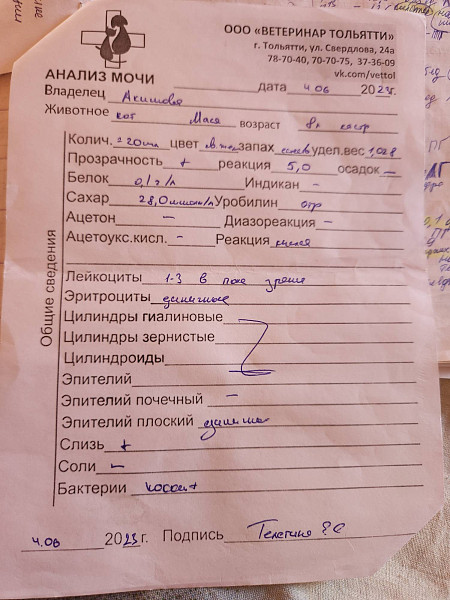 ООО «ВЕТЕРИНАР ТОЛЬЯТТИ»
г. Тольятти, ул. Свердлова, 24а
78-70-40, 70-70-75, 37-36-09
vk.com/vettol
АНАЛИЗ МОЧИ дата 4 06 2023г.
Владелец Акишова
Животное кот Мася возраст 8л кастр
Колич. ≈20мл цвет св.жел запах спец удел.вес 1,028
Прозрачность + реакция 5,0 осадок —
Белок 0,1 г/л Индикан –
Сахар 28,0 ммоль/л Уробилин отр
Ацетон — Диазореакция –
Ацетоукс.кисл. – Реакция кислая
Общие сведения
Лейкоциты 1-3 в поле зрения
Эритроциты единичные
Цилиндры гиалиновые
Цилиндры зернистые
Цилиндроиды
Эпителий
Эпителий почечный –
Эпителий плоский единичн
Слизь +
Соли –
Бактерии кокки+
4.06 2023 г. Подпись